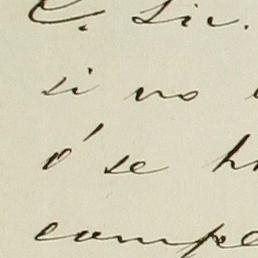 C. Lic.
si no
ó se h
compe